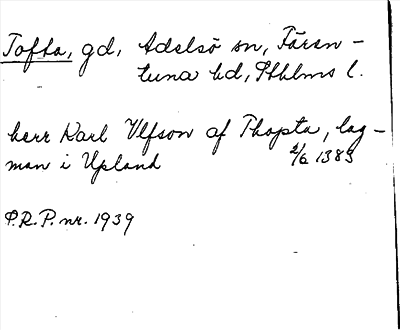 Tofta, gd, Adelsö sn, Fären-
tuna hd, Sthlms l.
herr Karl Vlfson af Thopta, lag-
man i Upland 2/6 1383
P.R.P. nr. 1939